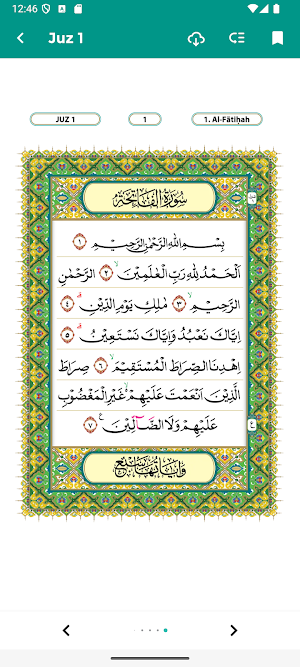 12:46
Juz 1
JUZ 1
1
1. Al-Fātiḥah
سُورَةُ الْفَاتِحَةِ
بِسْمِ اللهِ الرَّحْمٰنِ الرَّحِيْمِ ١
اَلْحَمْدُ لِلّٰهِ رَبِّ الْعٰلَمِيْنَ ٢ الرَّحْمٰنِ
الرَّحِيْمِ ٣ مٰلِكِ يَوْمِ الدِّيْنِ ٤
اِيَّاكَ نَعْبُدُ وَاِيَّاكَ نَسْتَعِيْنُ ٥
اِهْدِنَا الصِّرَاطَ الْمُسْتَقِيْمَ ٦ صِرَاطَ
الَّذِيْنَ اَنْعَمْتَ عَلَيْهِمْ غَيْرِ الْمَغْضُوْبِ
عَلَيْهِمْ وَلَا الضَّاۤلِّيْنَ ٧
وَاٰيَاتُهَا سَبْعٌ